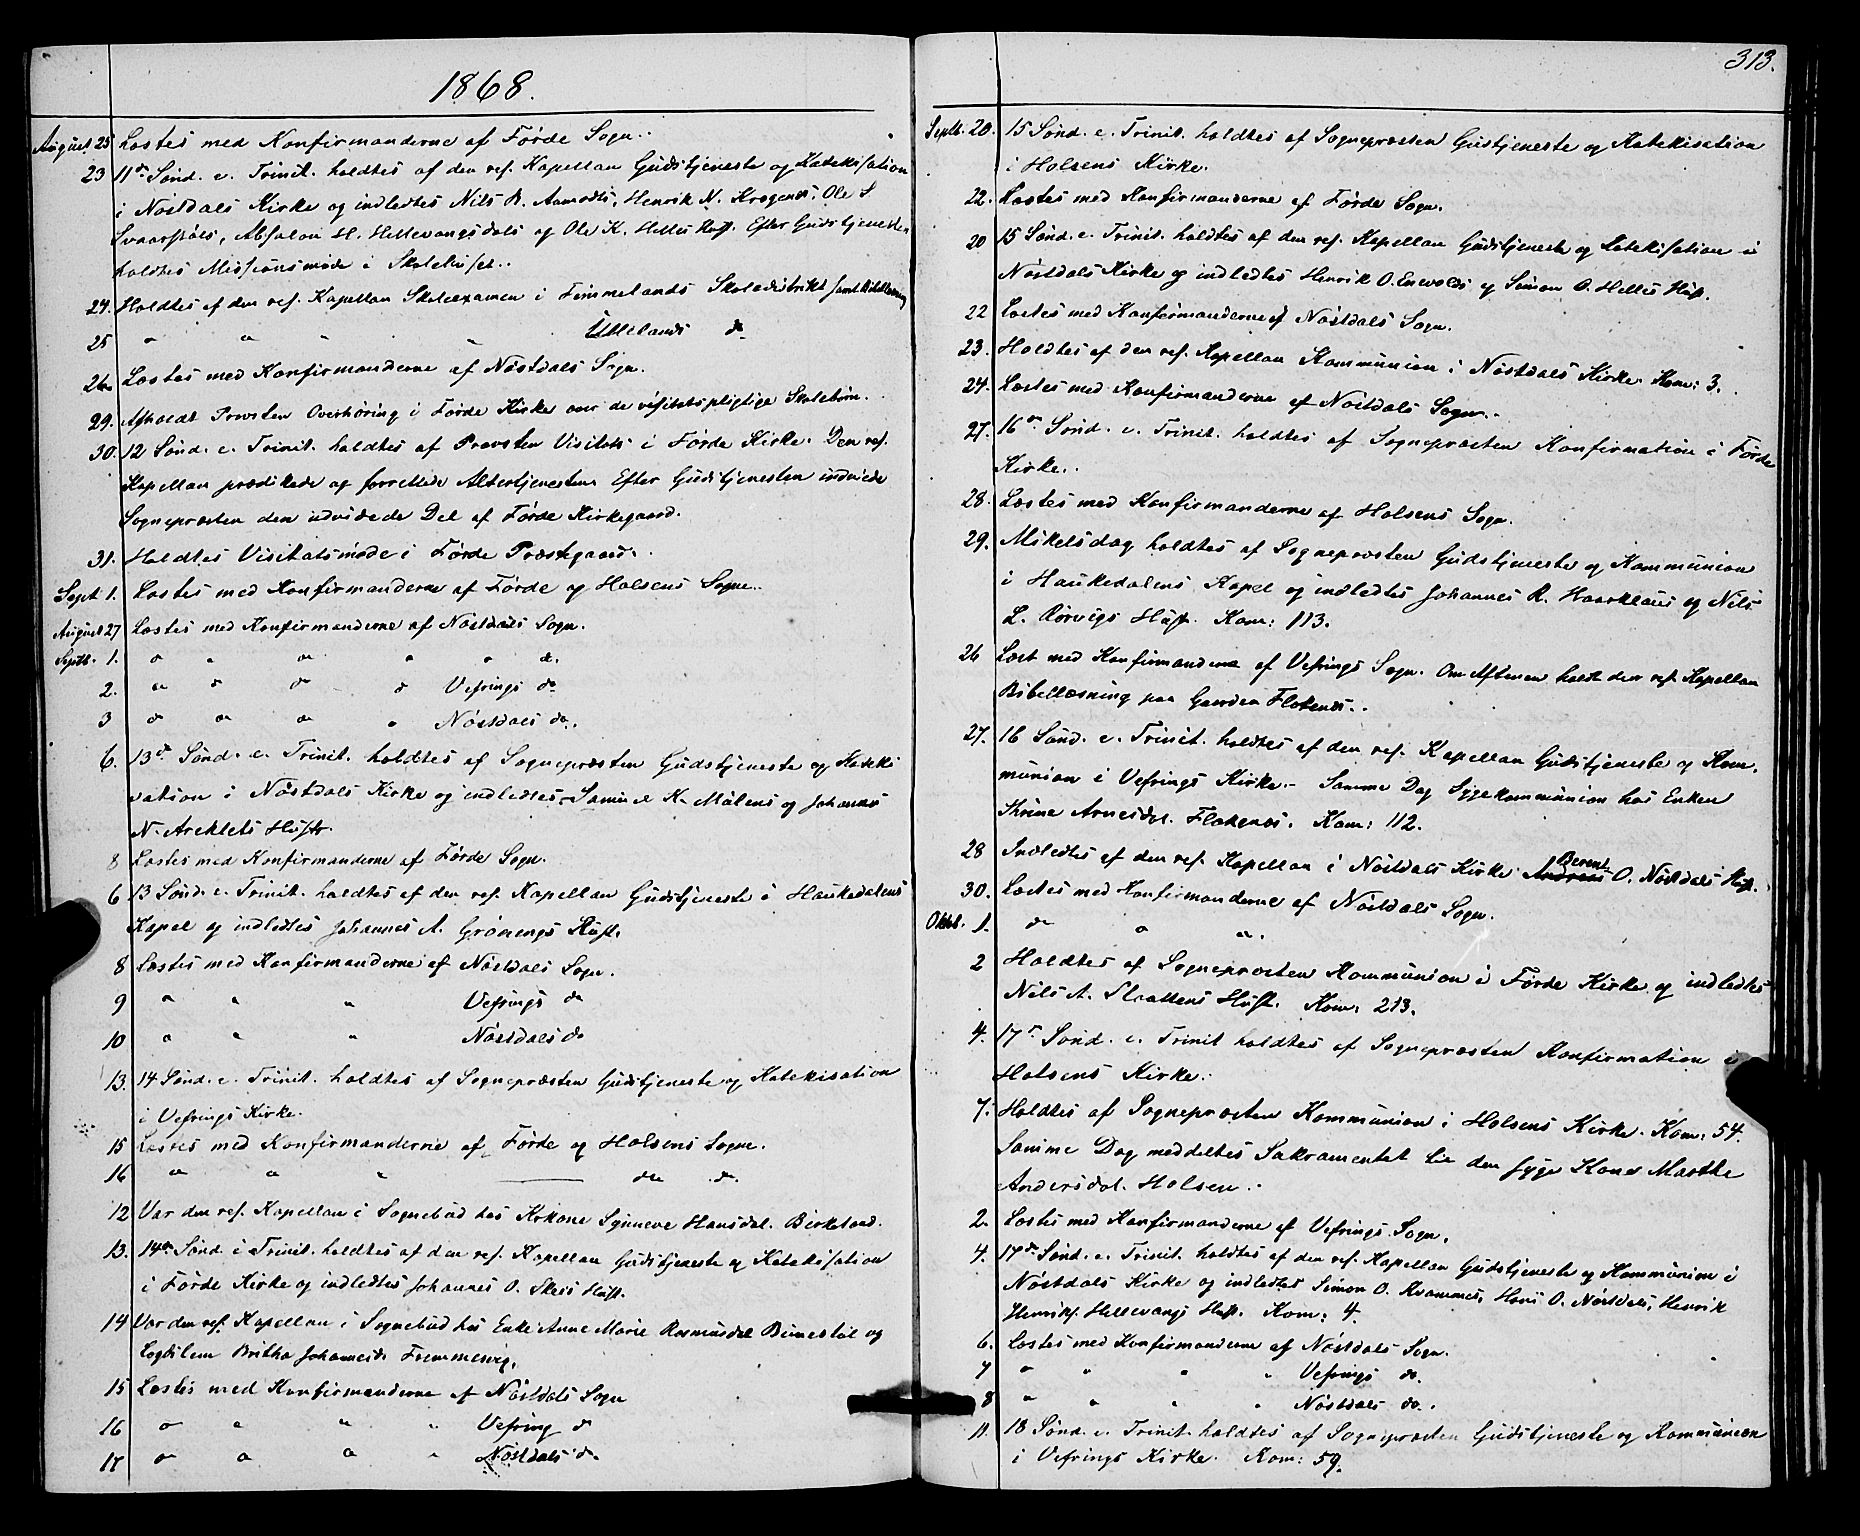 1868.
August 25 Læstes med Konfirmanderne af Førde Sogn.
23 11te Sønd. e. Trinit. holdtes af den res. Kapellan Gudstjeneste og Katekisation
i Nøstdals Kirke og indledtes Nils R. Aamodts, Henrik N. Krogenes, Ole S.
Svaarstøls, Absalon H. Hellevangsdals og Ole K. Helles Hust. Efter Gudstjenesten
holdtes Missionsmøde i Skolehuset.
24. Holdtes af den res. Kapellan Skoleexamen i Fimmelands Skoledistrikt samt Bibellæsning
25 " " " " Ullelands do
26 Læstes med Konfirmanderne af Nøstdals Sogn.
29. Afholdt Provsten Overhøring i Førde Kirke over de visitatspligtige Skolebørn.
30. 12 Sønd. e. Trinit. holdtes af Provsten Visitats i Førde Kirke. Den res.
Kapellan prædikede og forrettede Altertjenesten. Efter Gudstjenesten indviede
Sognepræsten den udvidede Del af Førde Kirkegaard.
31. Holdtes Visitatsmøde i Førde Præstegaard.
Sept 1. Læstes med Konfirmanderne af Førde og Holsens Sogne.
August 27 Læstes med Konfirmanderne af Nøstdals Sogn.
Septb. 1. " " " " " do.
2. " " " " Vefrings do
3 " " " " Nøstdals do.
6. 13de Sønd. e. Trinit. holdtes af Sognepræsten Gudstjeneste og Kateki-
sation i Nøstdals Kirke og indledtes Samuel K. Målens og Johannes
N. Areklets Hustr.
8 Læstes med Konfirmanderne af Førde Sogn.
6 13 Sønd. e. Trinit. holdtes af den res. Kapellan Gudstjeneste i Haukedalens
Kapel og indledtes Johannes A. Grønengs Hust.
8 Læstes med Konfirmanderne af Nøstdals Sogn.
9 " " " Vefrings do
10 " " " Nøstdals do
13. 14 Sønd. e. Trinit. holdtes af Sognepræsten Gudstjeneste og Katekisation
i Vefrings Kirke.
15 Læstes med Konfirmanderne af Førde og Holsens Sogne.
16 " " " do do.
12 Var den res. Kapellan i Sognebud hos Kårkone Synneve Hansdat. Birkeland.
13. 14de Sønd. e Trinit. holdtes af den res. Kapellan Gudstjeneste og Katekisation
i Førde Kirke og indledtes Johannes O. Skeis Hust.
14 Var den res. Kapellan i Sognebud hos Enke Anne Marie Rasmusdat og
Johannesdt.
15 Læstes med Konfirmanderne af Nøstdals Sogn
16 " " " " Vefring do
17 " " " " Nøstdals do
313.
Septb. 20. 15 Sønd. e. Trinit. holdtes af Sognepræsten Gudstjeneste og Katekisation
i Holsens Kirke.
22. Læstes med Konfirmanderne af Førde Sogn.
20 15 Sønd. e. Trinit. holdtes af den res. Kapellan Gudstjeneste og Katekisation i
Nøstdals Kirke og indledtes Henrik O. Enevolds og Simon O. Helles Hust.
22 Læstes med Konfirmanderne af Nøstdals Sogn.
23. Holdtes af den res. Kapellan Kommunion i Nøstdals Kirke. Kom: 3.
24. Læstes med Konfirmanderne af Nøstdals Sogn.
27. 16de Sønd. e. Trinit. holdtes af Sognepræsten Konfirmation i Førde
Kirke.
28. Læstes med Konfirmanderne af Holsens Sogn.
29. Mikelsdag holdtes af Sognepræsten Gudstjeneste og Kommunion
i Haukedalens Kapel og indledtes Johannes R. Haarklaus og Nils
L. Rørvigs Hust. Kom: 113.
26 Læst med Konfirmanderne af Vefrings Sogn. Om Aftenen holdt den res. Kapellan
Bibellæsning paa Gaarden Flokenes.
27. 16 Sønd. e. Trinit. holdtes af den res. Kapellan Gudstjeneste og Kom-
munion i Vefrings Kirke. – Samme Dag Sygekommunion hos Enken
Thrine Arnesdt. Flokenes. Kom: 112.
28 Indledtes af den res. Kapellan i Nøstdals Kirke Andreas Berent O. Nøstdals Hust.
30. Læstes med Konfirmanderne af Nøstdals Sogn.
Oktb. 1. do " ".
2 Holdtes af Sognepræsten Kommunion i Førde Kirke og indledtes
Nils A. Slaattens Hust. Kom: 213.
4. 17de Sønd. e. Trinit holdtes af Sognepræsten Konfirmation i
Holsens Kirke.
7. Holdtes af Sognepræsten Kommunion i Holsens Kirke. Kom: 54.
Samme Dag meddeltes Sakramentet til den syge Kone Marthe
Andersdat. Holsen.
2. Læstes med Konfirmanderne af Vefrings Sogn.
4. 17de Sønd. e. Trinit. holdtes af den res. Kapellan Gudstjeneste og Kommunion i
Nøstdals Kirke og indledtes Simon O. Kvammes, Hans O. Nøstdals, Henrik
Henriks. Hellevangs Hust. Kom: 4.
6. Læstes med Konfirmanderne af Nøstdals Sogn.
7 " " " " Vefrings do.
8 " " " " Nøstdals do.
11. 18 Sønd. e. Trinit. holdtes af Sognepræsten Gudstjeneste og Kommunion
i Vefrings Kirke. Kom: 59.